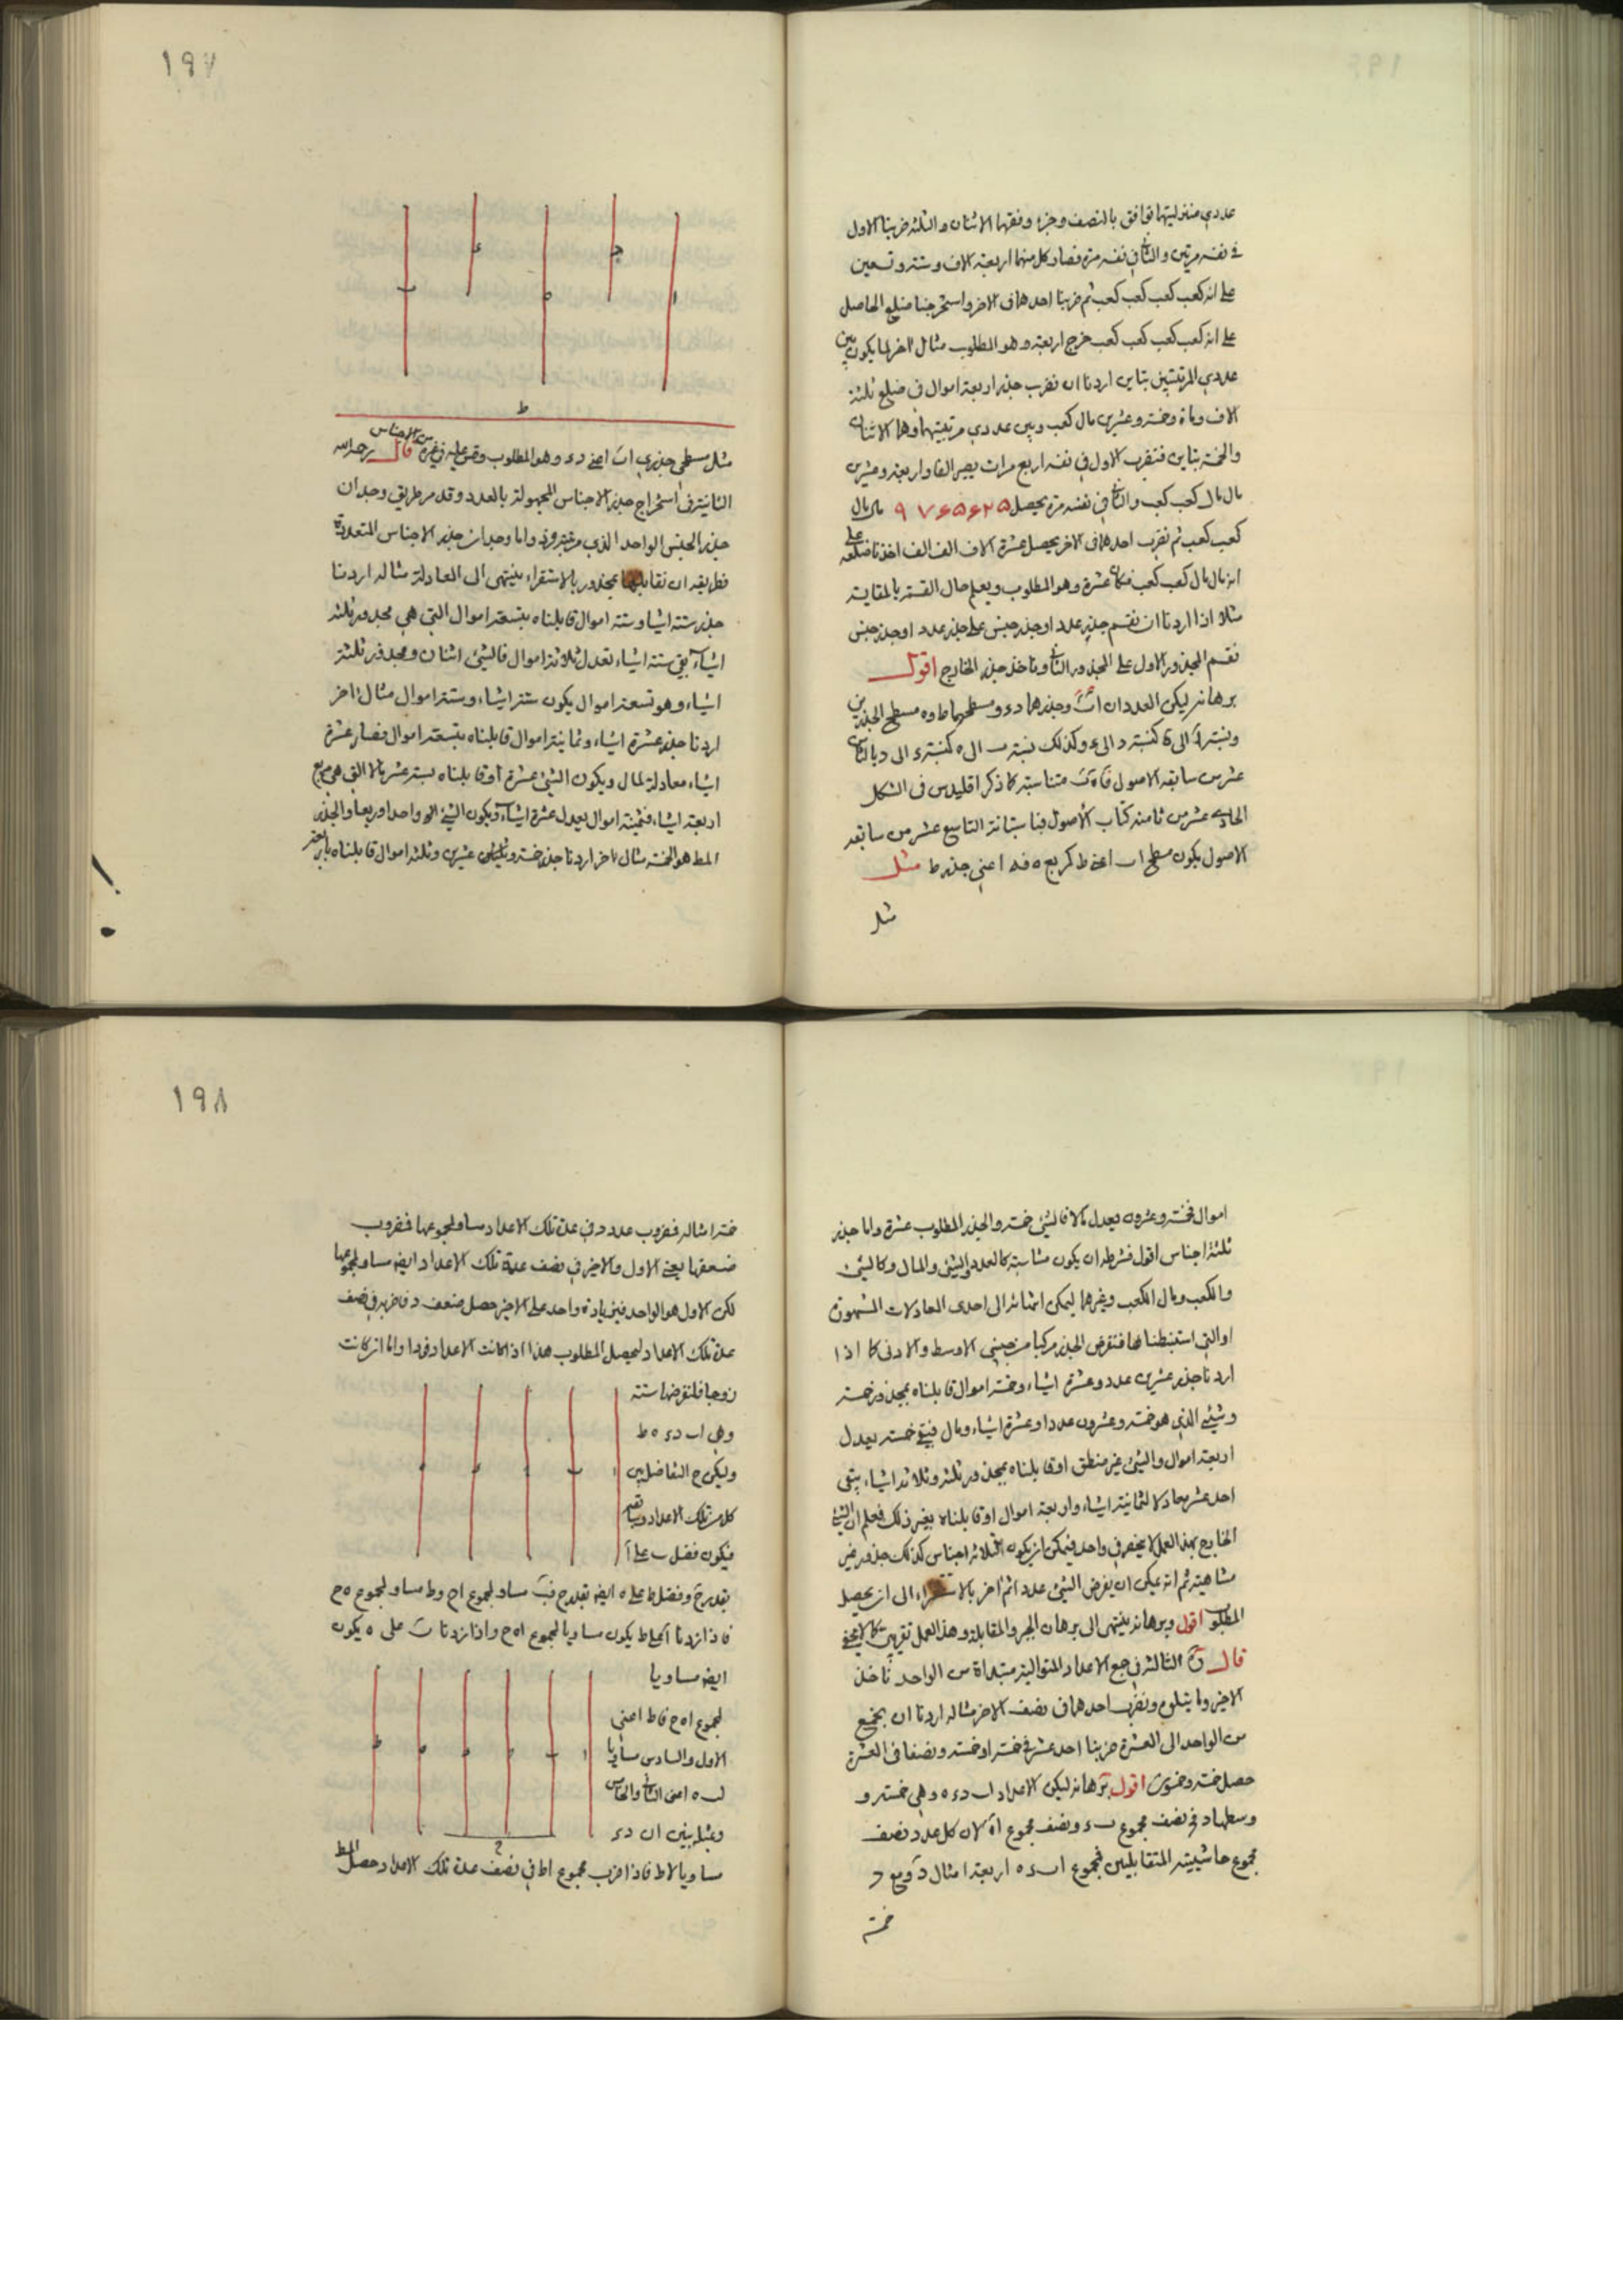 عددي منزليتهما توافق بالنصف وجزء وفقهما الاثنان والثلثه ضربنا الاول
في نفسه مرتين والثاني في نفسه مرة فصار كل منهما اربعة الاف وستة وتسعين
على انه كعب كعب كعب كعب ثم ضربنا احدهما في الاخر واستخرجنا ضلع الحاصل
على انه كعب كعب كعب كعب خرج اربعة وهو المطلوب مثال اخر لما يكون بين
عددي المرتبتين تباين اردنا ان نضرب جذر اربعة اموال في ضلع ثلثة
الاف ومائة وخمسة وعشرين مال كعب وبين عددي مرتبتيهما وهما الاثنان
والخمسة تباين فنضرب الاول في نفسه اربع مرات يصير الفا واربعة وعشرين
مال مال كعب كعب والثاني في نفسه مرة يحصل ٩٧۶۵۶۲۵ مال مال
كعب كعب ثم نضرب احدهما في الاخر يحصل عشرة الاف الف الف اخذنا ضلعه على
انه مال مال كعب كعب فكان عشرة وهو المطلوب ويعلم حال القسمة بالمقايسة
مثلا اذا اردنا ان نقسم جذر عدد او جذر جنس على جذر عدد او جذر جنس
نقسم المجذور الاول على المجذور الثاني وناخذ جذر الخارج اقول
برهانه ليكن العددان ا ب وجذرهما د ء ومسطحهما ط و ه مسطح الجذرين
ونسبة ا الى ه كنسبة د الى ء وكذلك نسبة ب الى ه كنسبة ء الى د بالثامن
عشر من سابعه الاصول فا ه ب متناسبة كما ذكر اقليدس في الشكل
الحادي عشر من ثامنه كتاب الاصول فباستبانة التاسع عشر من سابعه
الاصول يكون مسطح ا ب اعني ط كمربع ه فه اعني جذر ط مثل
مثل
١٩٧
ا
ج
ه
ء
ب
ط
مثل مسطح جذري ا ب اعني د ء وهو المطلوب وقس عليه في غيره من الاجناس قال رحمه الله
الثانية في استخراج جذر الاجناس المجهولة بالعدد وقد مر طريق وجدان
جذر الجنس الواحد الذي واما وجدان جذر الاجناس المتعددة
فطريقه ان نقابلها بمجذور بالاستقراء ينتهي الى المعادلة مثاله اردنا
جذر ستة اشيا وستة اموال قابلناه بتسعة اموال التي هي مجذور ثلثة
اشياء بقي ستة اشياء تعدل ثلاثة اموال فالشئ اثنان ومجذور ثلثة
اشياء وهو تسعة اموال يكون ستة اشياء وستة اموال مثال اخر
اردنا جذر عشرة اشياء وثمانية اموال قابلناه بتسعة اموال فصار عشرة
اشياء معادلة لمال ويكون الشئ عشرة او قابلناه بستة عشر مالا التي هي مربع
اربعة اشياء فثمنية اموال يعدل عشرة اشياء ويكون الشئ واحدا وربعا والجذر
المط هو الخمسة مثال اخر اردنا جذر خمسة وعشرين وثلثة اموال قابلناه باربعة
اموال فخمسة وعشرون يعدل مالا فالشئ خمسة والجذر المطلوب عشرة واما جذر
ثلثة اجناس اقول فشرطه ان يكون متناسبة كالعدد والشئ والمال وكالشئ
والكعب ومال الكعب وغيرها ليمكن انتهائه الى احدى المعادلات المشهورة
او التي استنبطناها فنفرض الجذر مركبا من جنسي الاوسط والادنى كما اذا
اردنا جذر عشرين عدد وعشرة اشياء وخمسة اموال قابلناه بمجذور خمسة
وشئ الذي هو خمسة وعشرون عددا وعشرة اشياء ومال فيبقى خمسة يعدل
اربعة اموال والشئ غير منطق او قابلناه بمجذور ثلثة وثلاثة اشياء يبقى
احد عشر معادلا لثمانية اشياء واربعة اموال او قابلناه بغير ذلك فعلم ان الشئ
الخارج بهذا العمل لا ينحصر في واحد فيمكن ان يكون لثلاثة اجناس كذلك جذور غير
متناهية ثم انه يمكن ان يفرض الشئ عددا ثم اخر بالاستقراء الى ان يحصل
المطلوب اقول وبرهانه ينتهي الى برهان الجبر والمقابلة وهذا العمل تقريبي كما لا يخفى
قال الثالثة في جمع الاعداد المتوالية مبتداة من الواحد ناخذ
الاخير وما يتلوه ونضرب احدهما في نصف الاخر مثاله اردنا ان نجمع
من الواحد الى العشرة ضربنا احد عشر في خمسة او خمسة ونصفا في العشرة
حصل خمسة وخمسون اقول برهانه ليكن الاعداد ا ب د ء ه وهي خمسة و
وسطها د فد نصف مجموع ب ء ونصف مجموع ا ه لان كل عدد نصف
مجموع حاشيتيه المتقابلتين فمجموع ا ب ء ه اربعة امثال د ومع د
خمسة
١٩٨
خمسة امثاله فمضروب عدد د في عدة تلك الاعداد مساو لمجموعها فمضروب
ضعفها يعني الاول والاخير في نصف عدة تلك الاعداد ايضا مساو لمجموعها
لكن الاول هو الواحد فبزيادة واحد على الاخير حصل ضعف د فاضربه في نصف
عدة تلك الاعداد ليحصل المطلوب هذا اذا كانت الاعداد فردا واما ان كانت
زوجا فلنفرضها ستة
وهي ا ب د ء ه ط
وليكن ح التفاضل بين
كل من تلك الاعداد
فيكون فضل ب على ا
بقدر ح وفضل ط على ه ايضا بقدر ح فب مساو لمجموع ا ح وط مساو لمجموع ه ح
فاذا زدنا ا على ط يكون مساويا لمجموع ا ه ح واذا زدنا ب على ه يكون
ايضا مساويا
لمجموع ا ه ح فا ط اعني
الاول والسادس مساويا
لب ه اعني الثاني والخامس
وبمثله يتبين ان د ء
ح
مساويا لا ط فاذا ضرب مجموع ا ط في نصف عدة تلك الاعداد حصل المط